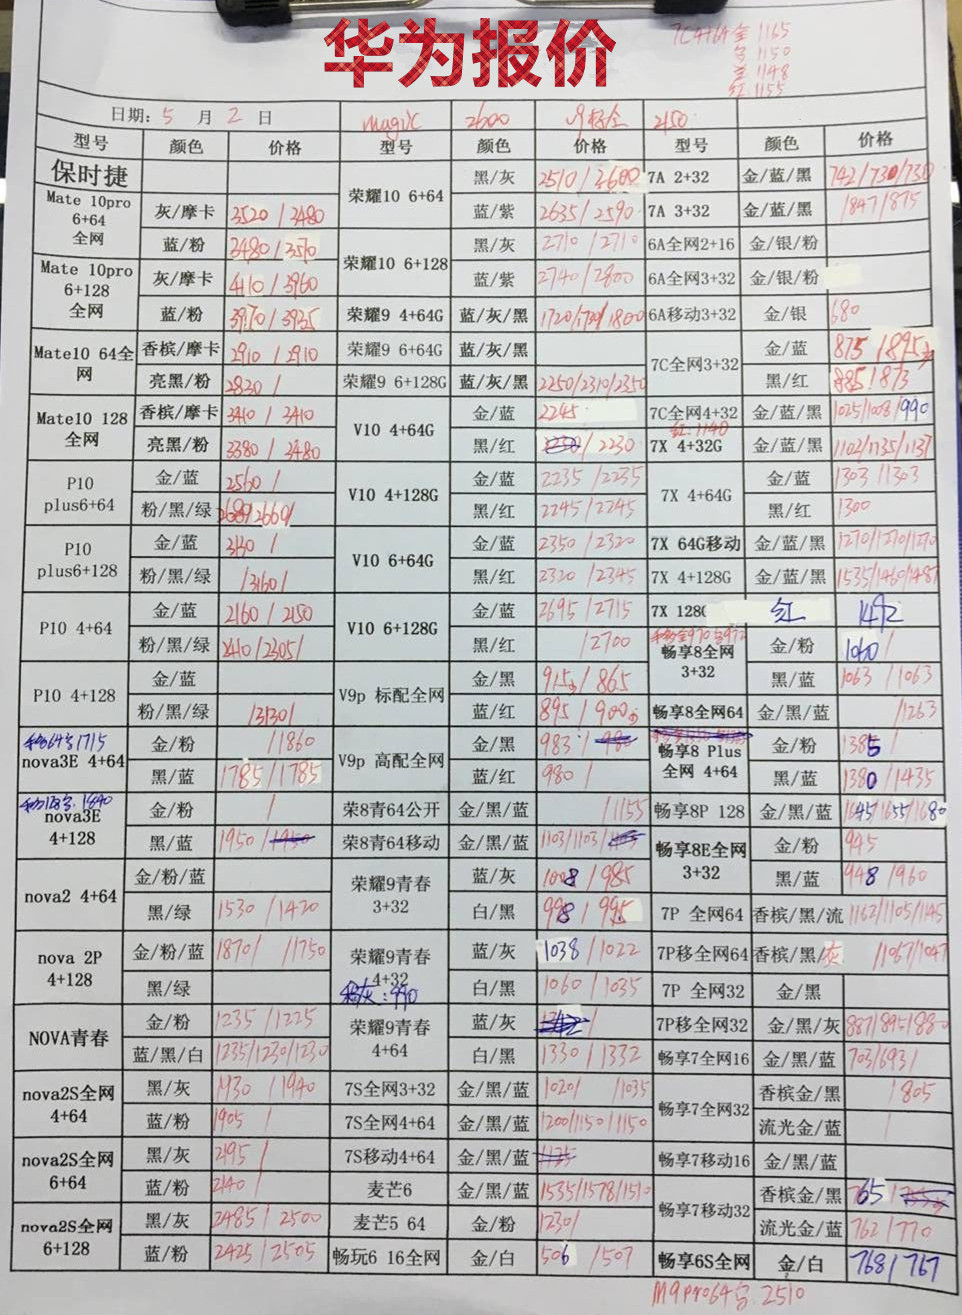 华为报价
7C4+64金1165
1150
1148
红1155
日期: 5 月 2 日 magic 2600 2150
型号 颜色 价格 型号 颜色 价格 型号 颜色 价格
保时捷 荣耀10 6+64 黑/灰 2510/2600 7A 2+32 金/蓝/黑 742/730/730
Mate 10pro 6+64 全网 灰/摩卡 3520/3480 蓝/紫 2635/2590 7A 3+32 金/蓝/黑 /847/875
蓝/粉 3480/3570 荣耀10 6+128 黑/灰 2710/2710 6A全网2+16 金/银/粉
Mate 10pro 6+128 全网 灰/摩卡 4110/3960 蓝/紫 2740/2800 6A全网3+32 金/银/粉
蓝/粉 3970/3935 荣耀9 4+64G 蓝/灰/黑 1720/1721/1800 6A移动3+32 金/银 680
Mate10 64全网 香槟/摩卡 2910/2910 荣耀9 6+64G 蓝/灰/黑 7C全网3+32 金/蓝 875/895
亮黑/粉 2830/ 荣耀9 6+128G 蓝/灰/黑 2250/2310/2350 黑/红 885/873
Mate10 128全网 香槟/摩卡 3410/3410 V10 4+64G 金/蓝 2245 7C全网4+32 金/蓝/黑 1025/1008/990
红:1140
亮黑/粉 3380/3480 黑/红 /2230 7X 4+32G 金/蓝/黑 1102/1135/1137
P10 plus6+64 金/蓝 2560/ V10 4+128G 金/蓝 2235/2235 7X 4+64G 金/蓝 1303/1303
粉/黑/绿 2689/2660/ 黑/红 2245/2245 黑/红 1300
P10 plus6+128 金/蓝 3130/ V10 6+64G 金/蓝 2350/2320 7X 64G移动 金/蓝/黑 1270/1270/1270
粉/黑/绿 /3160/ 黑/红 2320/2345 7X 4+128G 金/蓝/黑 1535/1460/1487
P10 4+64 金/蓝 2160/2150 V10 6+128G 金/蓝 2695/2715 7X 128G 红 1472
粉/黑/绿 2410/2305/ 黑/红 /2700 畅享8全网 3+32 金/粉 1060/
P10 4+128 金/蓝 V9p 标配全网 金/黑 915/865 黑/蓝 1063/1063
粉/黑/绿 /3130/ 蓝/红 895/900 畅享8全网64 金/黑/蓝 /1263
移64:1715
nova3E 4+64 金/粉 /1860 V9p 高配全网 金/黑 983/ 畅享8 Plus 全网 4+64 金/粉 1385
黑/蓝 1785/1785 蓝/红 980/ 黑/蓝 1380/1435
移128:1840
nova3E 4+128 金/粉 / 荣8青64公开 金/黑/蓝 /1155 畅享8P 128 金/黑/蓝 1645/1655/1680
黑/蓝 1950/1950 荣8青64移动 金/黑/蓝 1103/1103/ 畅享8E全网 3+32 金/粉 945
nova2 4+64 金/粉/蓝 荣耀9青春 3+32 蓝/灰 1008/985 黑/蓝 948/960
黑/绿 1530/1420 白/黑 998/995 7P 全网64 香槟/黑/流 1162/1105/1145
nova 2P 4+128 金/粉/蓝 1870/ /1750 荣耀9青春 4+32 蓝/灰 1038/1022 7P移全网64 香槟/黑/灰 /1067/1047
移灰:990
黑/绿 白/黑 1060/1035 7P 全网32 金/黑
NOVA青春 金/粉 1235/1225 荣耀9青春 4+64 蓝/灰 7P移全网32 金/黑/灰 887/895/880
蓝/黑/白 1235/1230/1230 白/黑 1330/1332 畅享7全网16 金/黑/蓝 703/693/
nova2S全网 4+64 黑/灰 1930/1940 7S全网3+32 金/黑/蓝 1020/ /1035 畅享7全网32 香槟金/黑 /805
蓝/粉 1905/ 7S全网4+64 金/黑/蓝 1200/1150/1150 流光金/蓝 /
nova2S全网 6+64 黑/灰 2195/ 7S移动4+64 金/黑/蓝 1175 畅享7移动16 金/黑/蓝
蓝/粉 2140/ 麦芒6 金/黑/蓝 1535/1578/1510 畅享7移动32 香槟金/黑 765/
nova2S全网 6+128 黑/灰 2485/2500 麦芒5 64 金/粉 1230/ 流光金/蓝 762/770
蓝/粉 2425/2505 畅玩6 16全网 金/白 506/507 畅享6S全网 金/白 768/767
M9pro64:2510